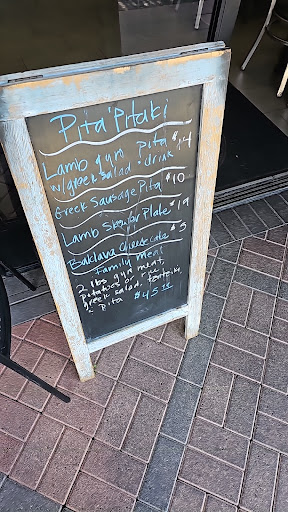 Pita Pitaki
Lamb gyro pita $14
w/ greek salad + drink
Greek Sausage Pita $10
Lamb Skewer Plate $19
Baklava Cheesecake $5
Family Menu
2 lbs gyro meat,
potatoes or rice,
greek salad, tzatziki,
& pita $45.00